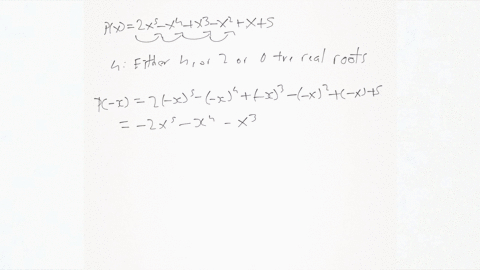 P(x) = 2x⁵ - x⁴ + x³ - x² + x + 5
4: Either 4, or 2 or 0 +ve real roots
P(-x) = 2(-x)⁵ - (-x)⁴ + (-x)³ - (-x)² + (-x) + 5
= -2x⁵ - x⁴ - x³